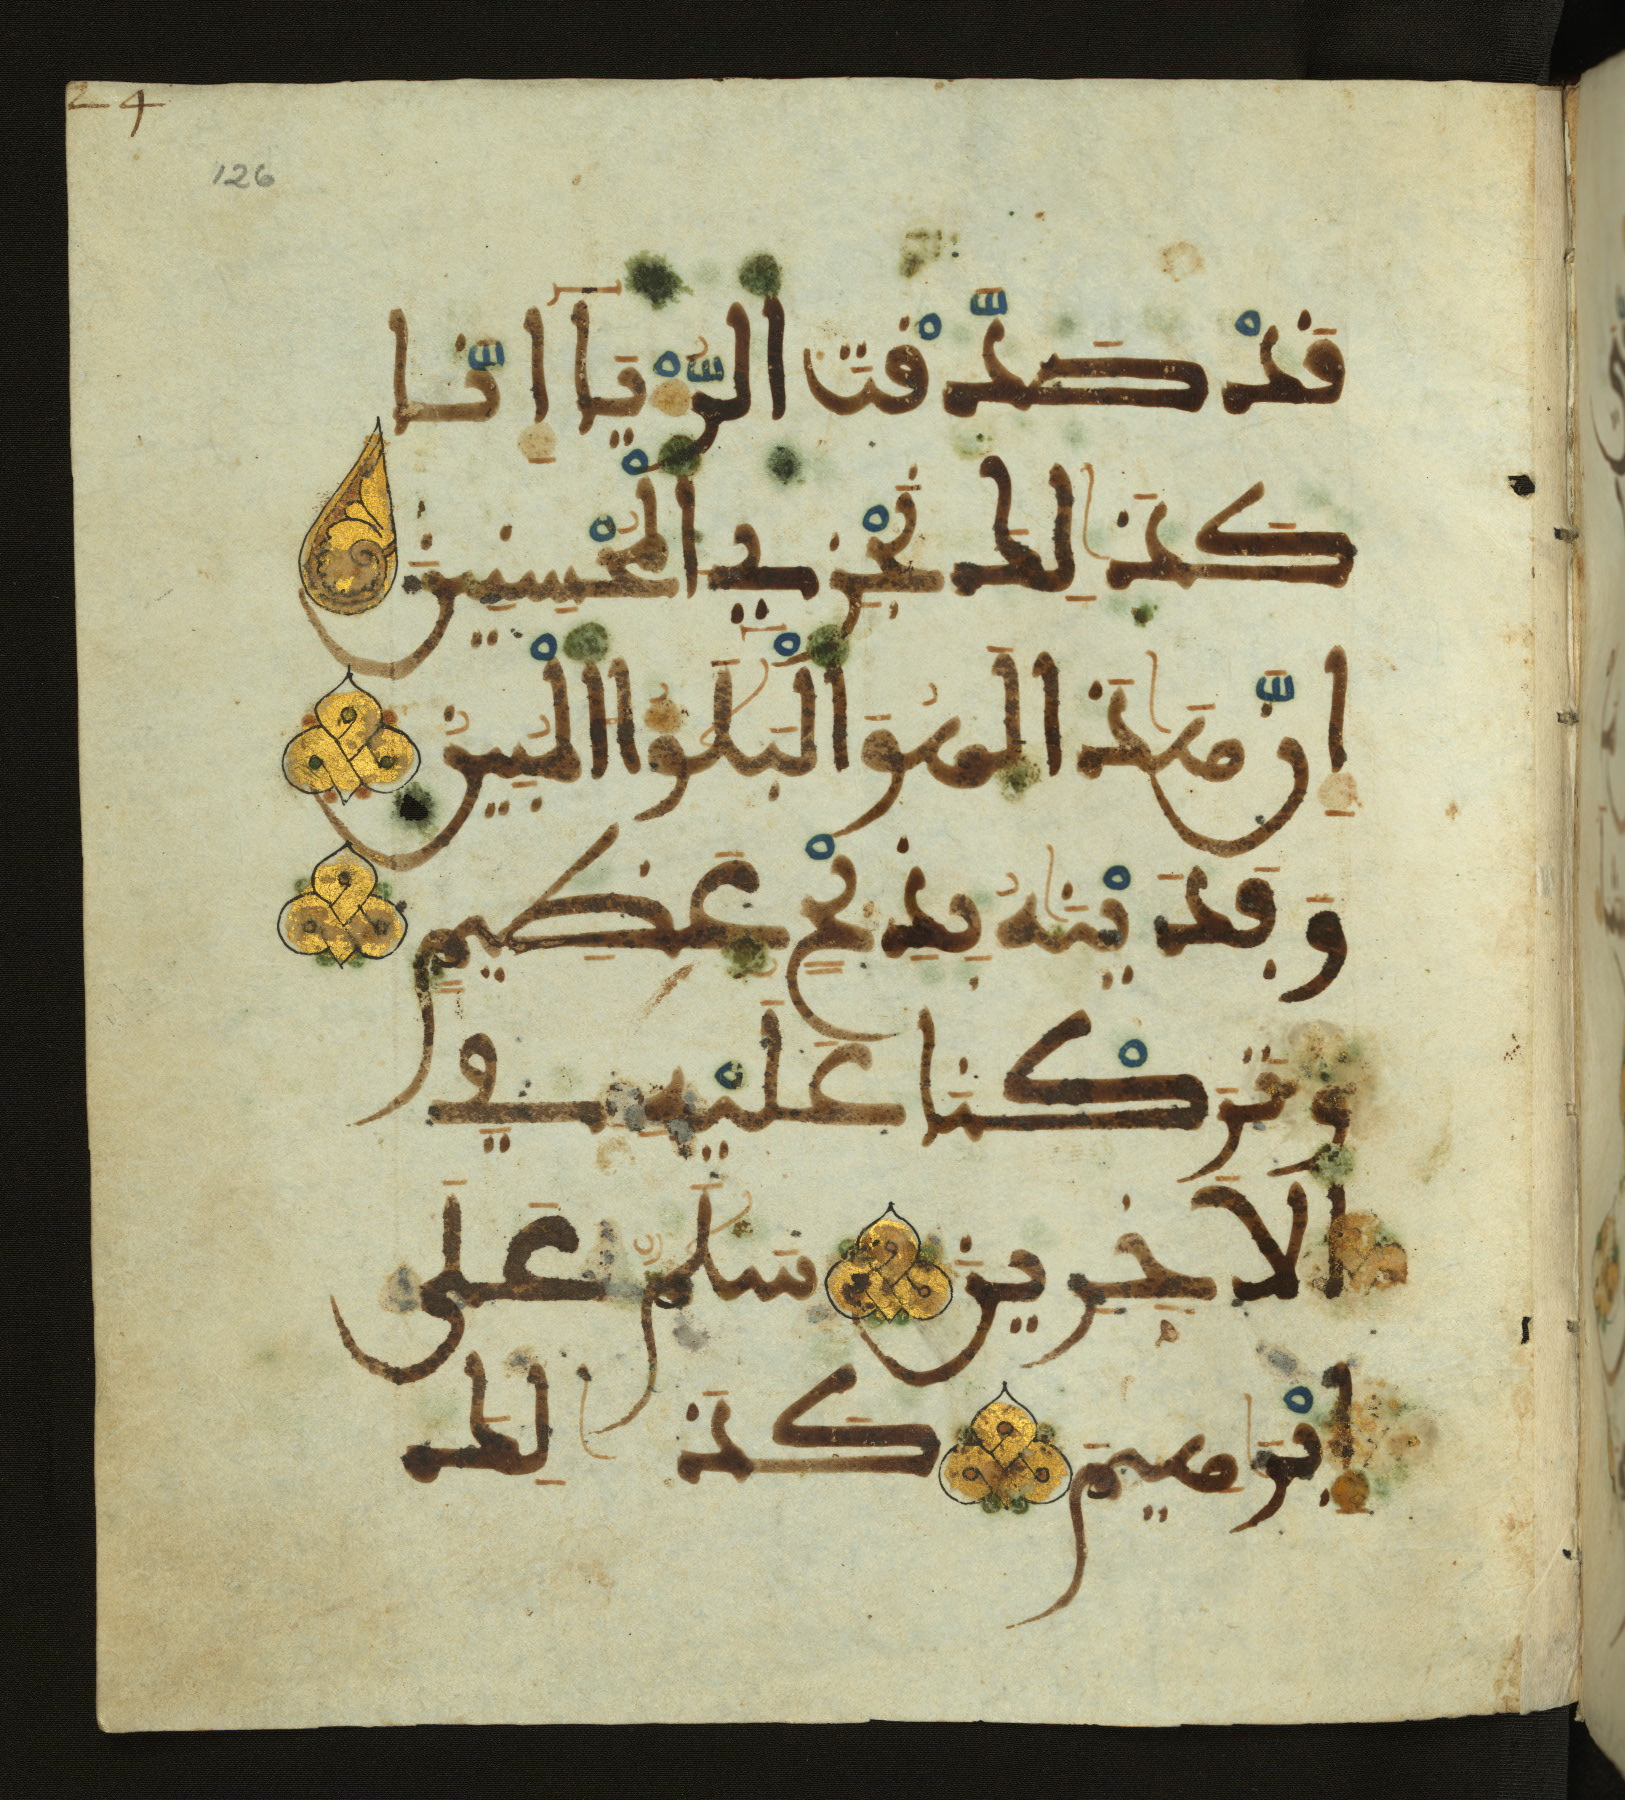 24
126
قَدْ صَدَّقْتَ ٱلرُّءْيَآ إِنَّا
كَذَٰلِكَ نَجْزِے ٱلْمُحْسِنِينَ
إِنَّ هَٰذَا لَهُوَ ٱلْبَلَٰٓؤُا۟ ٱلْمُبِينُ
وَفَدَيْنَٰهُ بِذِبْحٍ عَظِيمٍ
وَتَرَكْنَا عَلَيْهِ فِے
ٱلْأَخِرِينَ سَلَٰمٌ عَلَىٰ
إِبْرَٰهِيمَ كَذَٰلِكَ